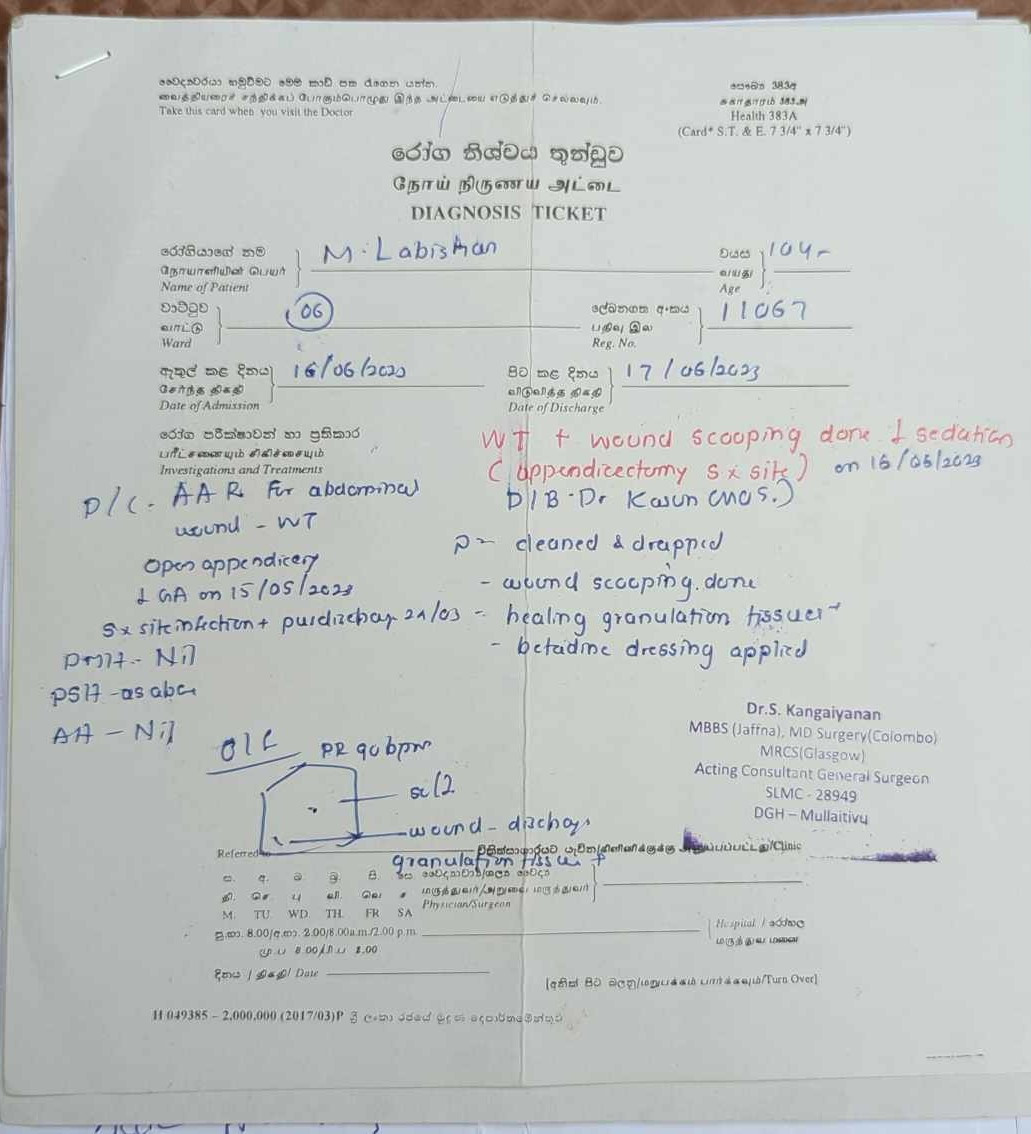 වෛද්‍යවරයා හමුවීමට මෙම කාඩ් පත රැගෙන යන්න.
வைத்தியரைச் சந்திக்கப் போகும்பொழுது இந்த அட்டையை எடுத்துச் செல்லவும்.
Take this card when you visit the Doctor
සෞඛ්‍ය 383අ
சுகாதாரம் 383அ
Health 383A
(Card* S.T. & E. 7 3/4" x 7 3/4")
රෝග නිශ්චය තුන්ඩුව
நோய் நிருணய அட்டை
DIAGNOSIS TICKET
රෝගියාගේ නම
நோயாளியின் பெயர்
Name of Patient
M. Labishan
වයස
வயது
Age
10y
වාට්ටුව
வாட்டு
Ward
06
ලේඛනගත අංකය
பதிவு இல
Reg. No.
11067
ඇතුල් කළ දිනය
சேர்ந்த திகதி
Date of Admission
16/06/2023
පිට කළ දිනය
விடுவித்த திகதி
Date of Discharge
17/06/2023
රෝග පරීක්ෂාවන් හා ප්‍රතිකාර
பரீட்சனையும் சிகிச்சையும்
Investigations and Treatments
WT + wound scooping done sedation
(appendicectomy sx site) on 16/06/2023
D/B - Dr Kasun
P/C - AAR for abdominal
wound - WT
Open
GA on 15/05/2023
Sx site infection +
PMH - Nil
PSH - as
AH - Nil
P - cleaned &
- wound scooping done
- healing granulation tissue +
- betadine dressing applied
O/E PR 90bpm
wound -
granulation tissue +
Dr.S. Kangaiyanan
MBBS (Jaffna), MD Surgery(Colombo)
MRCS(Glasgow)
Acting Consultant General Surgeon
SLMC - 28949
DGH – Mullaitivu
Referred to
/Clinic
ස. අ. බ. බ්‍ර. සි. සෙ
தி. செ. பு வி. வெ ச
M. TU WD. TH. FR SA
மருத்துவர்/அறுவை மருத்துவர்
Physician/Surgeon
පූ.භා. 8.00/අ.භා. 2.00/8.00a.m./2.00 p.m.
மு.ப 8.00/பி.ப 2.00
Hospital / රෝහල
மருத்துவ மனை
දිනය / திகதி/ Date
[අනික් පිට බලනු/மறுபக்கம் பார்க்கவும்/Turn Over]
H 049385 – 2,000,000 (2017/03)P ශ්‍රී ලංකා රජයේ මුද්‍රණ දෙපාර්තමේන්තුව